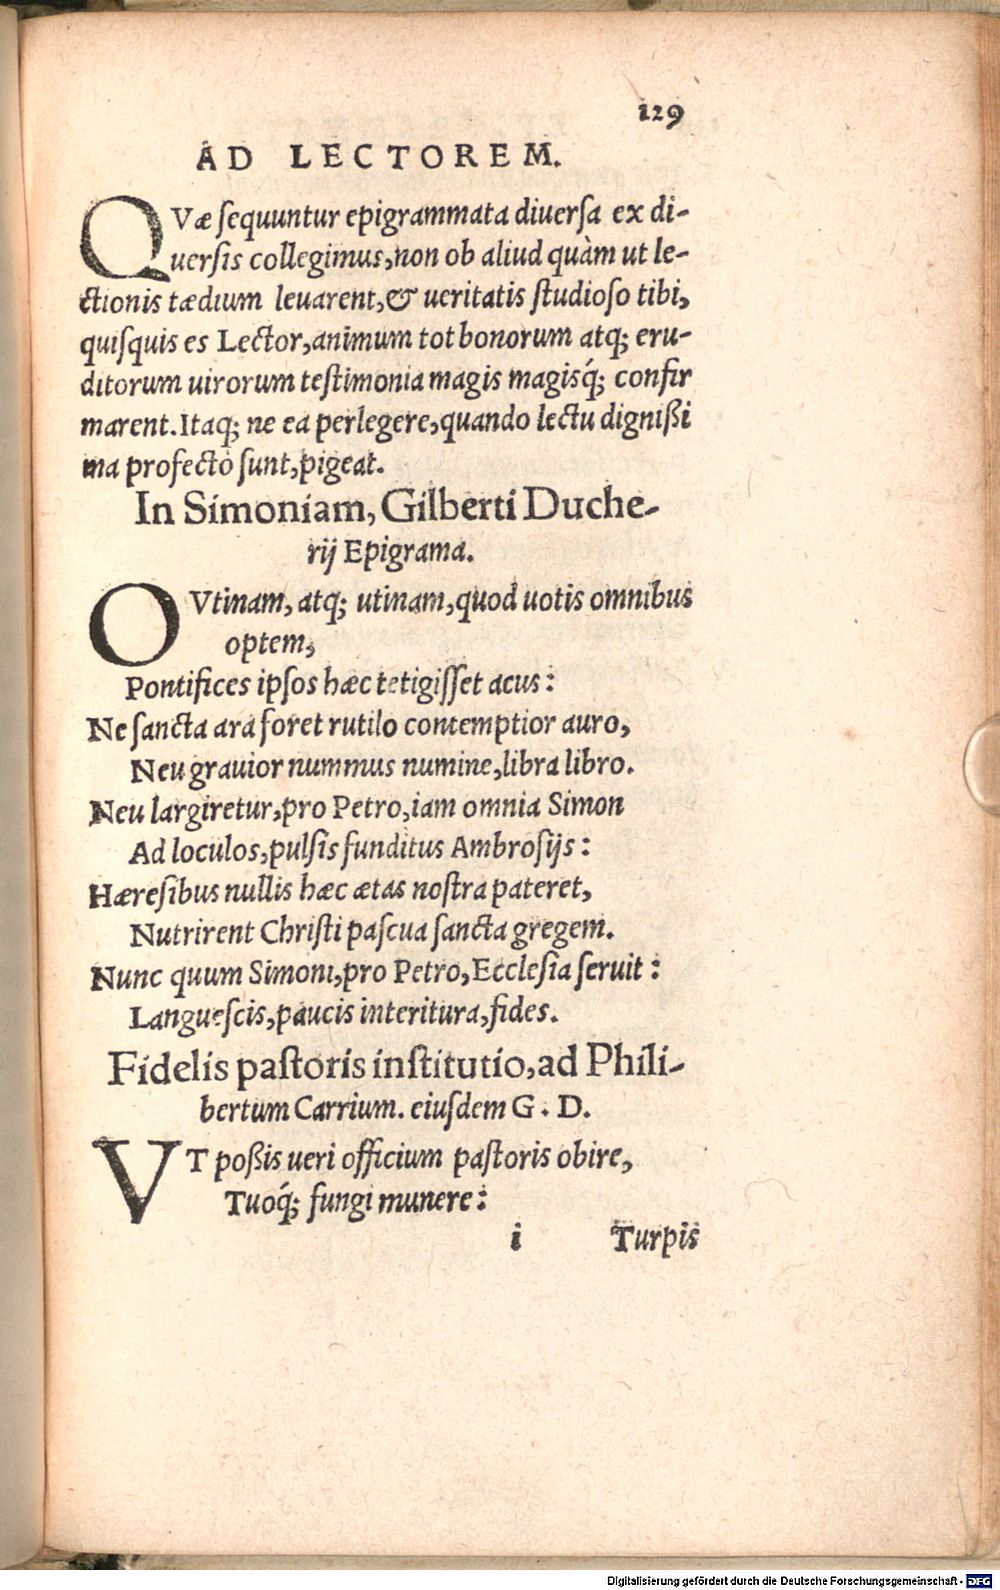 129
AD LECTOREM.
QVæ ſequuntur epigrammata diuerſa ex di-
uerſis collegimus, non ob aliud quàm ut le-
ctionis tædium leuarent, & ueritatis ſtudioſo tibi,
quiſquis es Lector, animum tot bonorum atq; eru-
ditorum uirorum teſtimonia magis magisq́; confir
marent. Itaq; ne ea perlegere, quando lectu dignißi
ma profectò ſunt, pigeat.
In Simoniam, Gilberti Duche-
rij Epigrama.
O Vtinam, atq; utinam, quod uotis omnibus
optem,
Pontifices ipſos hæc tetigiſſet acus:
Ne ſancta ara foret rutilo contemptior auro,
Neu grauior nummus numine, libra libro.
Neu largiretur, pro Petro, iam omnia Simon
Ad loculos, pulſis funditus Ambroſijs:
Hæreſibus nullis hæc ætas noſtra pateret,
Nutrirent Chriſti paſcua ſancta gregem.
Nunc quum Simoni, pro Petro, Eccleſia ſeruit:
Langueſcis, paucis interitura, fides.
Fidelis paſtoris inſtitutio, ad Phili-
bertum Carrium. eiuſdem G. D.
VT poßis ueri officium paſtoris obire,
Tuoq́; fungi munere:
i Turpis
Digitalisierung gefördert durch die Deutsche Forschungsgemeinschaft - DFG